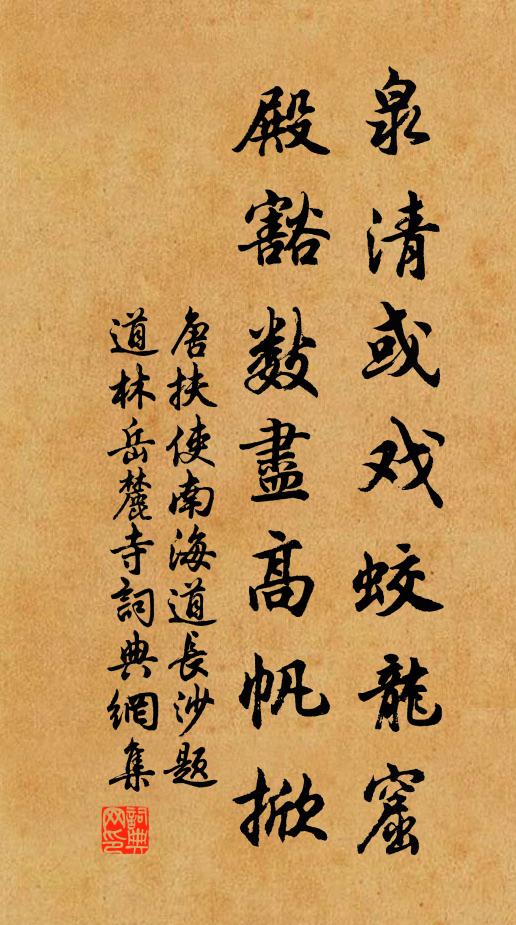 泉清或戏蛟龍窟
殿豁数盡高帆掀
唐扶使南海道長沙题
道林岳麓寺詞典網集
詞典网印